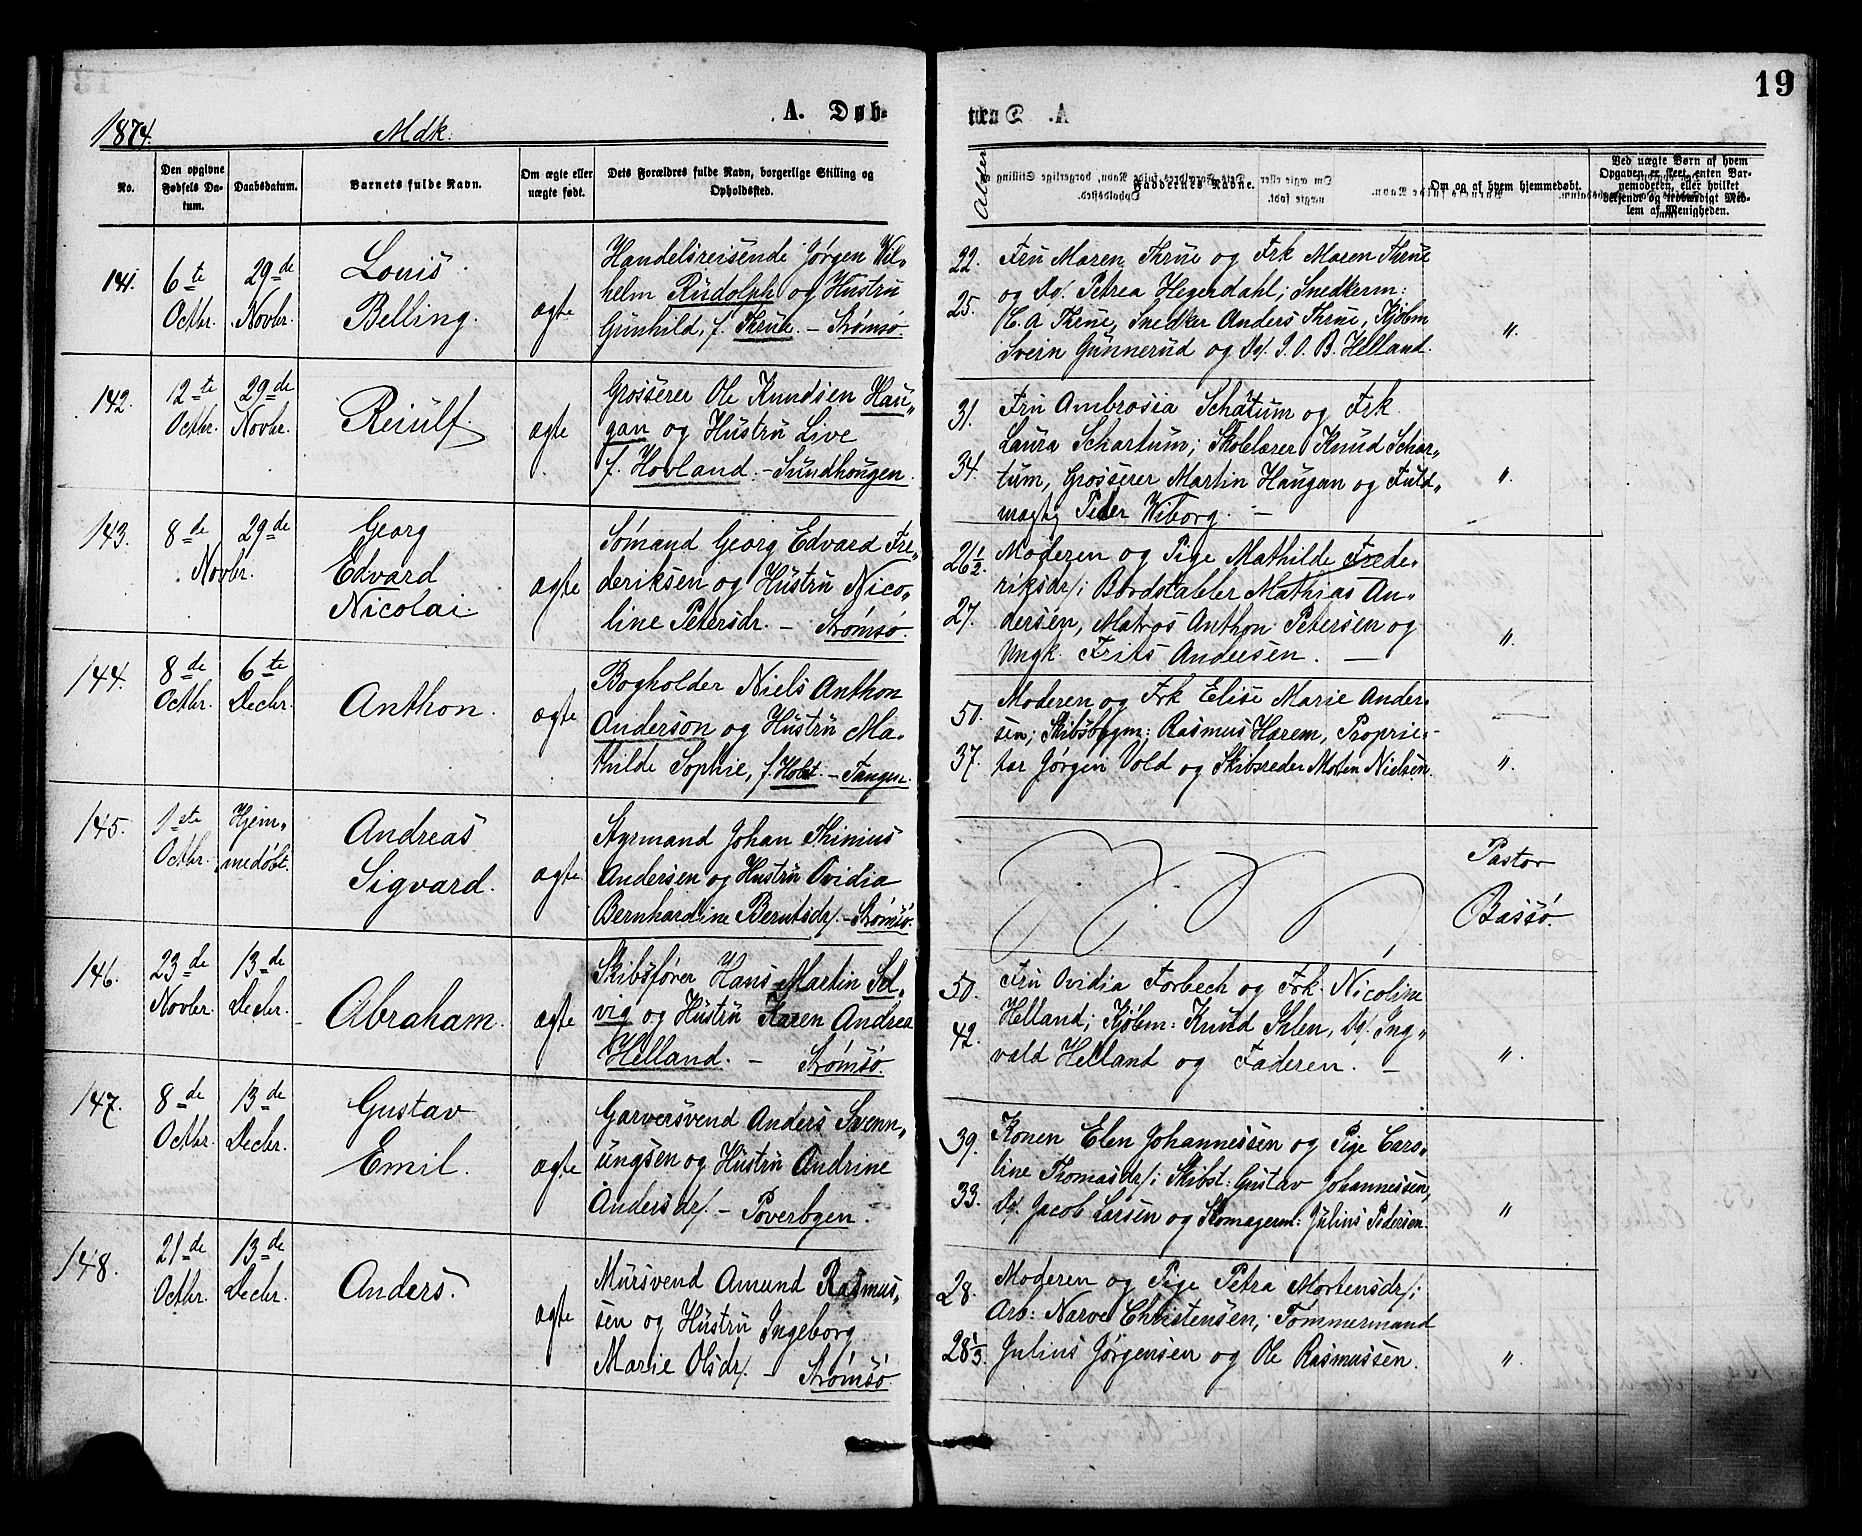 19
1874. Mdk. A. Døb- te.
No.
Den opgivne Fødsels Datum.
Daabsdatum.
Barnets fulde Navn.
Om ægte eller uægte født.
Dets Forældres fulde Navn, borgerlige Stilling og Opholdssted.
Alder
Faddernes Navne.
Om og af hvem hjemmedøbt.
Ved uægte Børn af hvem
Opgaven er skeet, enten Bar-
nemoderen, eller hvilket
voksende og trovær­digt Med-
lem af Menigheden.
141. 6te Octbr. 29de Novbr.
Louis
Belling.
ægte
Handelsreisende Jørgen Wil-
helm Rudolph og Hustru
Gunhild, f. Thrue. – Strømsø.
22.
25.
Fru Maren Thrue og Frk Maren Thrue
og Do/. Petrea Hegerdahl; Snedkerm:
C. A Thrue, Snedker Anders Thrue, Kjøbm
Svein Gunnerud og Do/. I. O. B. Helland.
"
142. 12te Octbr. 29de Novbr.
Reiulf.
ægte
Grosserer Ole Knudsen Hau-
gan og Hustru Live
f. Hovland. – Sundhougen.
31.
34.
Fru Ambrosia Schatum og Frk.
Laura Schartum; Skolelærer Knud Schar-
tum, Grosserer Martin Haugan og Fuld-
mægtg Peder Wiborg. –
"
143. 8de 29de Novbr.
Georg
Edvard
Nicolai.
ægte
Sømand Georg Edvard Fre-
deriksen og Hustru Nico-
line Petersdr. – Strømsø.
26½.
27.
Moderen og Pige Mathilde Frede-
riksdr/; Bordstabler Mathias An-
dersen, Matros Anthon Petersen og
Ungk. Frits Andersen. –
"
144. 8de Octbr. 6te Decbr.
Anthon.
ægte
Bogholder Niels Anthon
Anderson og Hustru Ma-
thilde Sophie, f. Holst. – Tangen.
50.
37.
Moderen og Frk Elise Marie Ander-
sen; Skibsbygm: Rasmus Hærem, Proprie-
tær Jørgen Vold og Skibsreder Morten Nielsen.
"
145. 1ste Octbr. Hjem-
medøbt.
Andreas
Sigvard.
ægte
Styrmand Johan Thinius
Andersen og Hustru Ovidia
Bernhardine Berntsdr/. – Strømsø.
Pastor
Bassø.
146. 23de Novbr. 13de Decbr.
Abraham.
ægte
Skibsfører Hans Martin Sel-
vig og Hustru Karen Andrea
Helland. – Strømsø.
50.
42.
Fru Ovidia Forbech og Frk. Nicoline
Helland; Kjøbm: Knud Ihlen, Do/. Ing-
vald Helland og Faderen. –
"
147. 8de Octbr. 13de Decbr.
Gustav
Emil.
ægte
Garversvend Anders Svenn-
ungsen og Hustru Andrine
Andersdr/. – Poverbgen.
39.
33.
Konen Elen Johannessen og Pige Caro-
line Thomasdr/; Skibst: Gustav Johannessen,
Do/. Jacob Larsen og Skomagerm: Julius Pedersen.
"
148. 21de Octbr. 13de Decbr.
Anders.
ægte
Mursvend Amund Rasmus-
sen og Hustru Ingeborg
Marie Olsdr/. – Strømsø.
28.
28⅓.
Moderen og Pige Petra Mortensdr/;
Arb: Narve Christensen, Tømmermand
Julius Jørgensen og Ole Rasmussen.
"